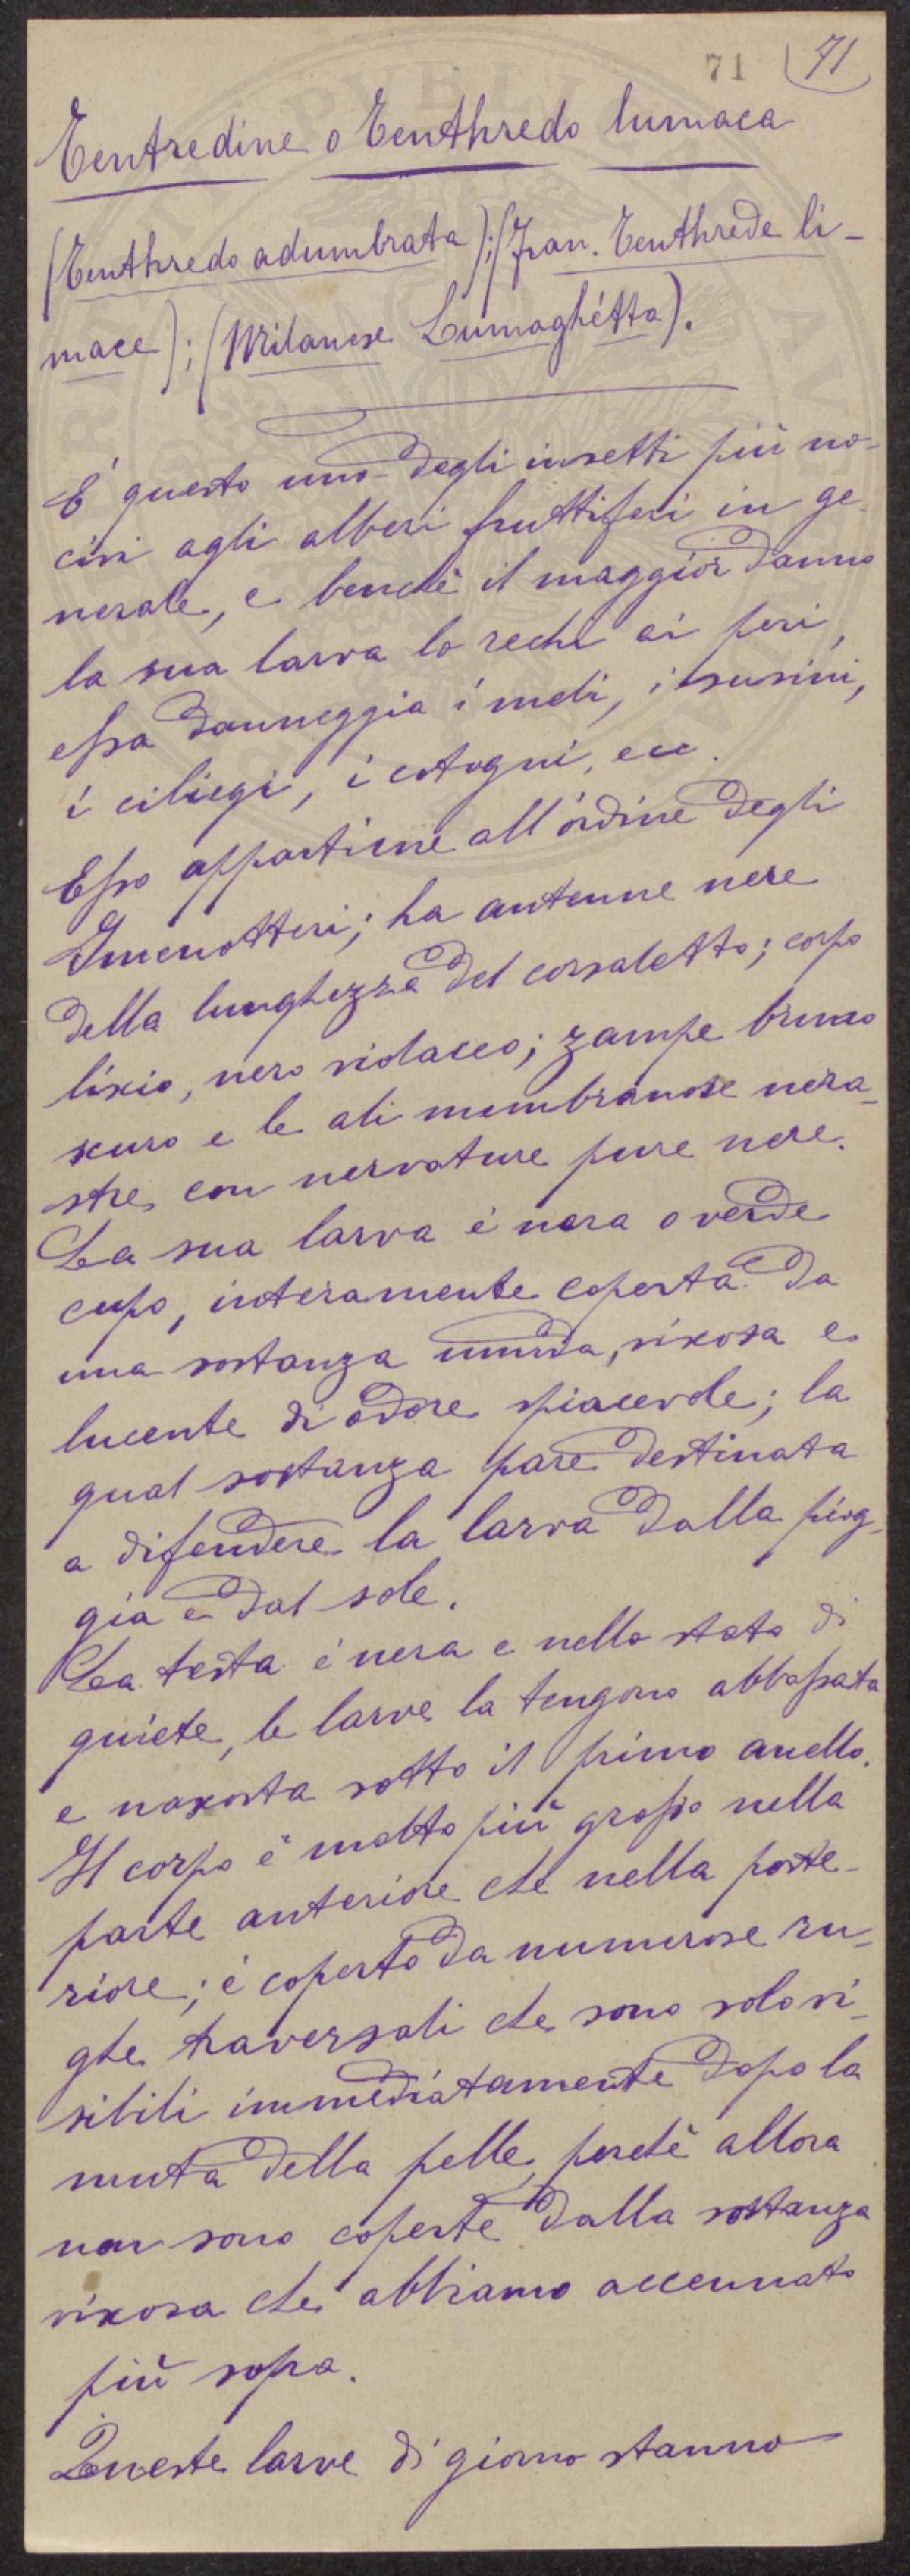 71 71
Tentredine o Tenthredo lumaca
(Tenthredo adumbrata); (Fran. Tenthrede li-
mace); (Milanese Lumaghétta).
E' questo uno degli insetti più no-
civi agli alberi fruttiferi in ge-
nerale, e benchè il maggior danno
la sua larva lo rechi ai peri,
essa danneggia i meli, i susini,
i ciliegi, i cotogni, ecc.
Esso appartiene all'ordine degli
Imenotteri; ha antenne nere
della lunghezza del corsaletto; corpo
liscio, nero violaceo; zampe bruno
scuro e le ali membranose nera-
stre con nervature pure nere.
La sua larva è nera o verde
cupo, interamente coperta da
una sostanza umida, viscosa e
lucente di odore spiacevole; la
qual sostanza pare destinata
a difendere la larva dalla piog-
gia e dal sole.
La testa è nera e nello stato di
quiete, le larve la tengono abbassata
e nascosta sotto il primo anello.
Il corpo è molto più grosso nella
parte anteriore che nella poste-
riore; è coperto da numerose ru-
ghe traversali che sono solo vi-
sibili immediatamente dopo la
muta della pelle, perchè allora
non sono coperte dalla sostanza
viscosa che abbiamo accennato
più sopra.
Queste larve di giorno stanno